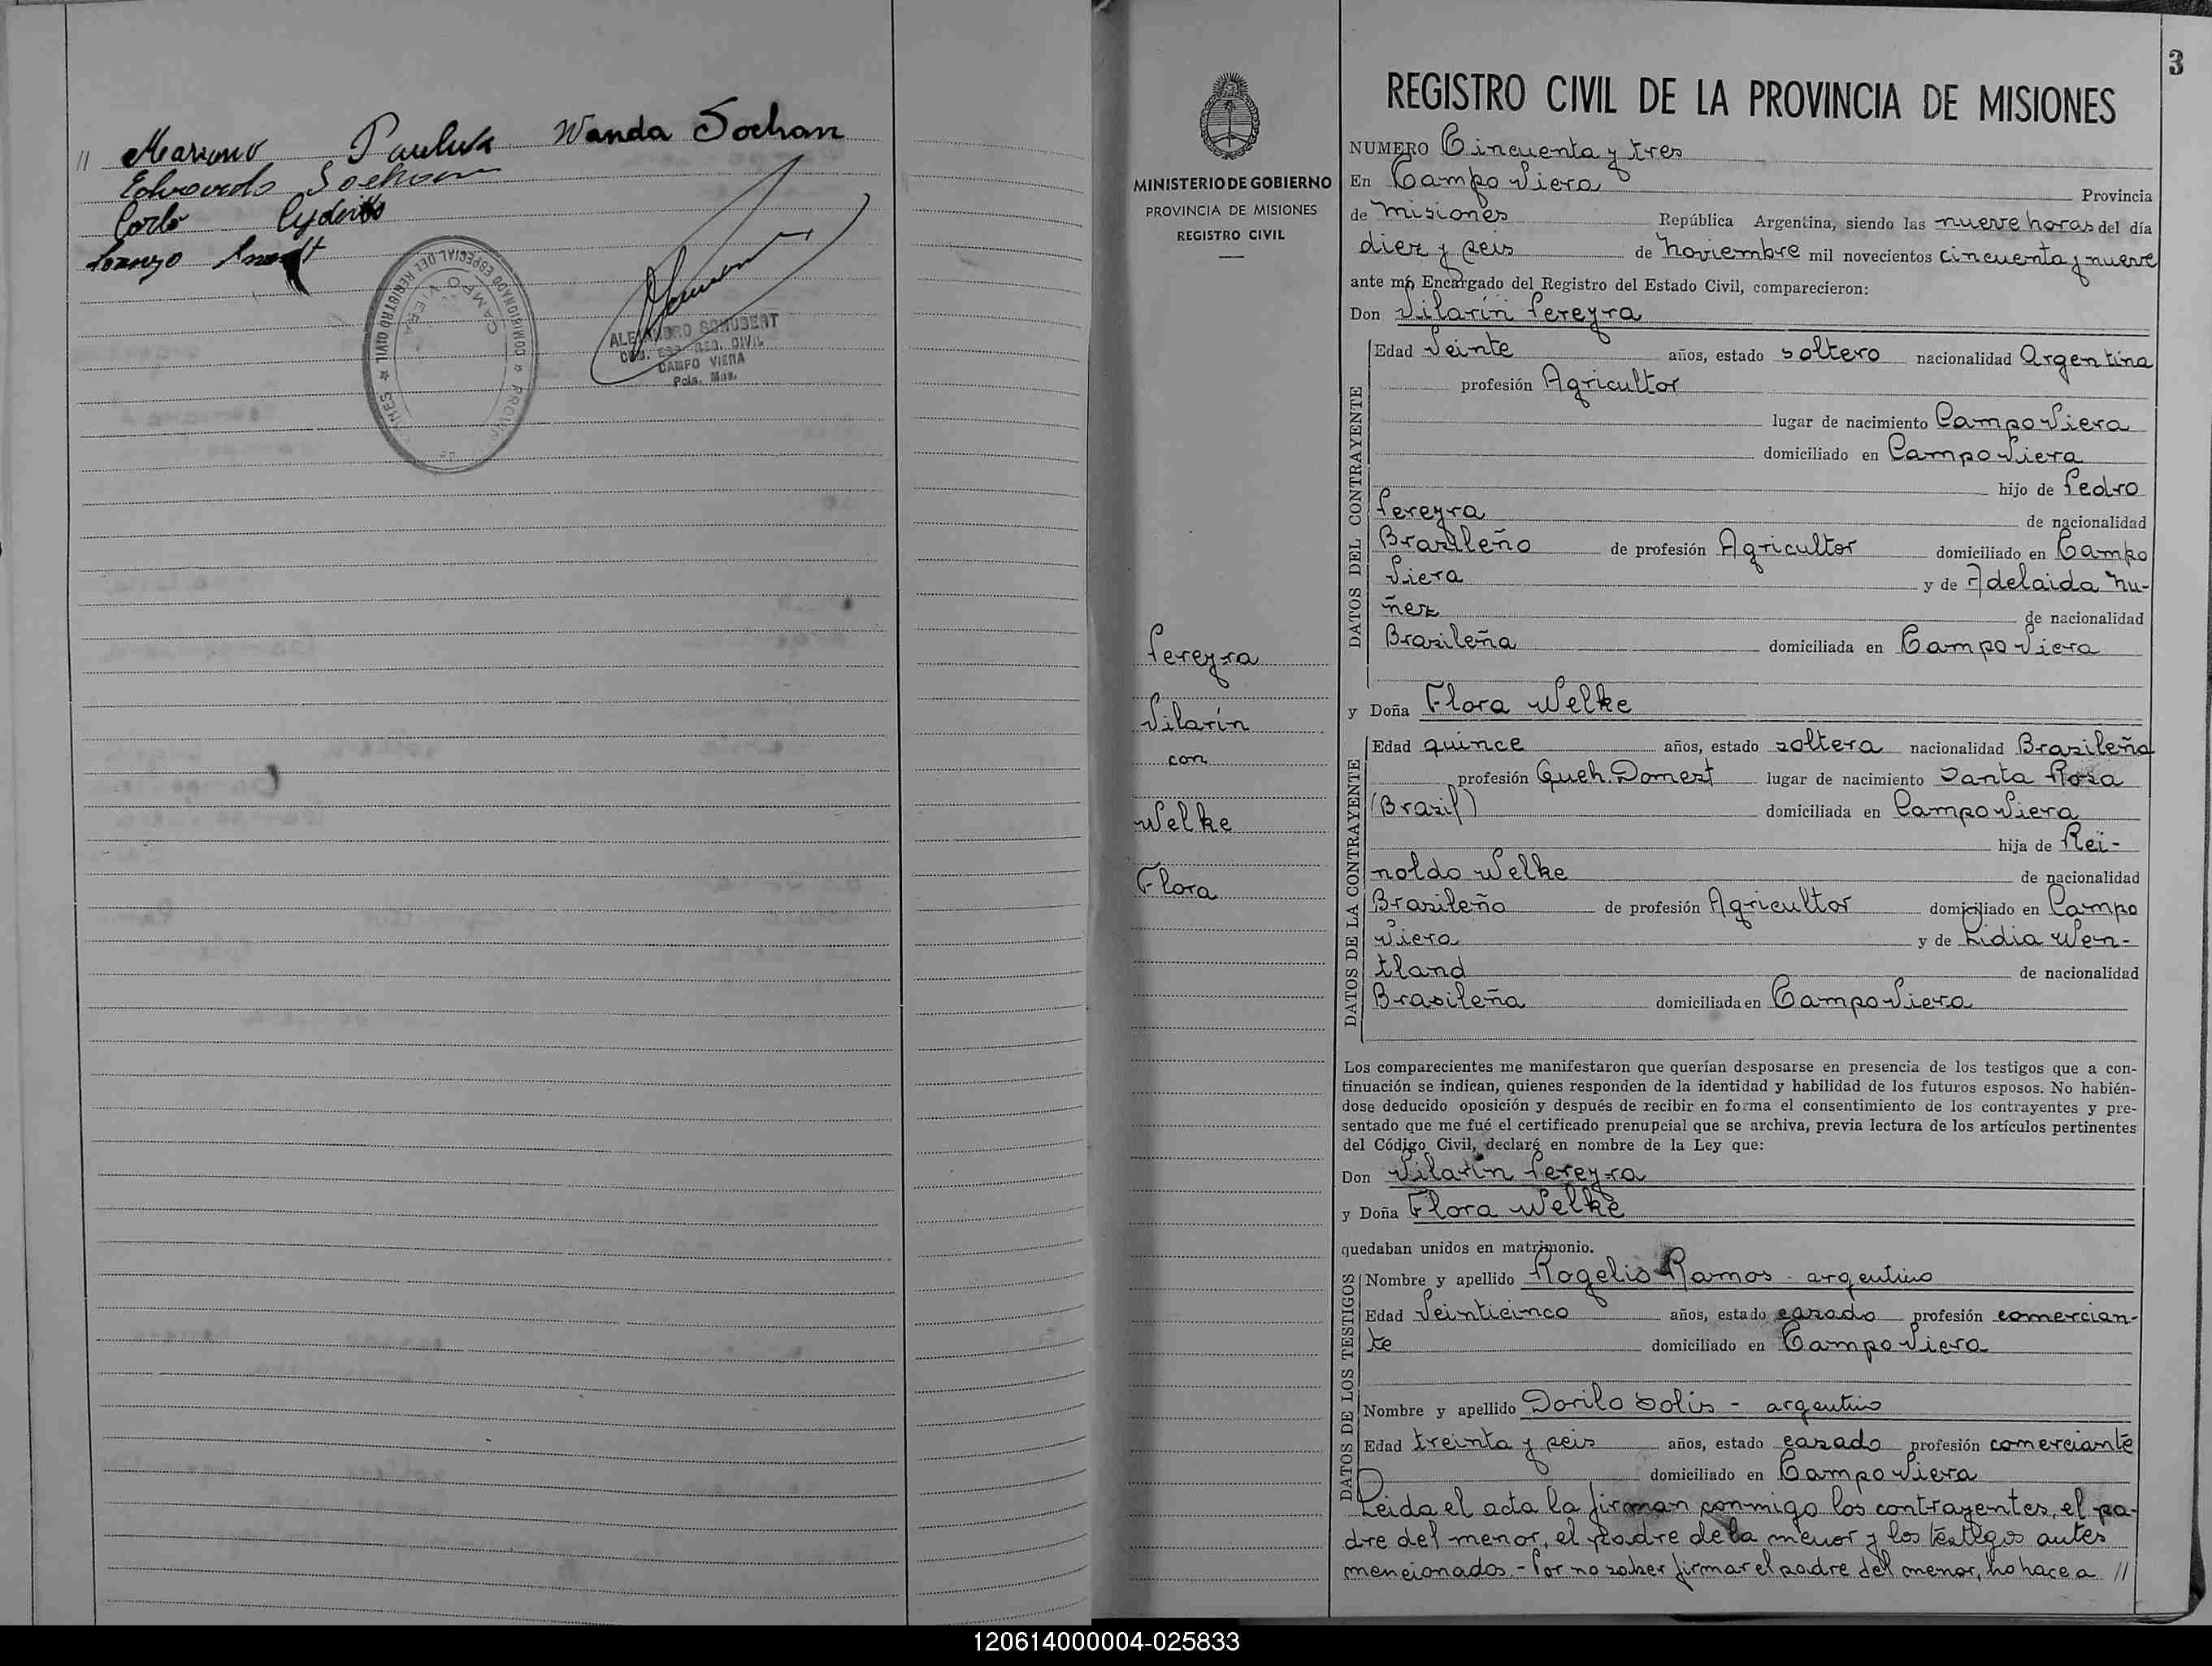 // Mariano Pauluk Wanda Sochan
Eduardo Sochan
Carlo
Lorenzo
COMISIONADO ESPECIAL DEL REGISTRO CIVIL
CAMPO VIERA
ALEJANDRO SCHUBERT
COM. ESP. REG. CIVIL
CAMPO VIERA
Pcia. Mnes.
3
MINISTERIO DE GOBIERNO
PROVINCIA DE MISIONES
REGISTRO CIVIL
Pereyra
Vilarín
con
Welke
Flora
REGISTRO CIVIL DE LA PROVINCIA DE MISIONES
NUMERO Cincuenta y tres
En Campo Viera Provincia
de Misiones República Argentina, siendo las nueve horas del día
diez y seis de Noviembre mil novecientos cincuenta y nueve
ante mí, Encargado del Registro del Estado Civil, comparecieron:
Don Vilarín Pereyra
DATOS DEL CONTRAYENTE
Edad Veinte años, estado soltero nacionalidad Argentina
profesión Agricultor
lugar de nacimiento Campo Viera
domiciliado en Campo Viera
hijo de Pedro
Pereyra de nacionalidad
Brasileño de profesión Agricultor domiciliado en Campo
Viera y de Adelaida Nu-
ñez de nacionalidad
Brasileña domiciliada en Campo Viera
y Doña Flora Welke
DATOS DE LA CONTRAYENTE
Edad quince años, estado soltera nacionalidad Brasileña
profesión Queh. Domest lugar de nacimiento Santa Rosa
(Brasil) domiciliada en Campo Viera
hija de Rei-
noldo Welke de nacionalidad
Brasileño de profesión Agricultor domiciliado en Campo
Viera y de Lidia Wen-
tland de nacionalidad
Brasileña domiciliada en Campo Viera
Los comparecientes me manifestaron que querían desposarse en presencia de los testigos que a con-
tinuación se indican, quienes responden de la identidad y habilidad de los futuros esposos. No habién-
dose deducido oposición y después de recibir en forma el consentimiento de los contrayentes y pre-
sentado que me fué el certificado prenupcial que se archiva, previa lectura de los artículos pertinentes
del Código Civil, declaré en nombre de la Ley que:
Don Vilarín Pereyra
y Doña Flora Welke
quedaban unidos en matrimonio.
DATOS DE LOS TESTIGOS
Nombre y apellido Rogelio Ramos - argentino
Edad Veinticinco años, estado casado profesión comercian-
te domiciliado en Campo Viera
Nombre y apellido Dorilo Solis - argentino
Edad treinta y seis años, estado casado profesión comerciante
domiciliado en Campo Viera
Leida el acta la firman conmigo los contrayentes, el pa-
dre del menor, el padre de la menor y los testigos antes
mencionados.- Por no saber firmar el padre del menor, lo hace a //
120614000004-025833